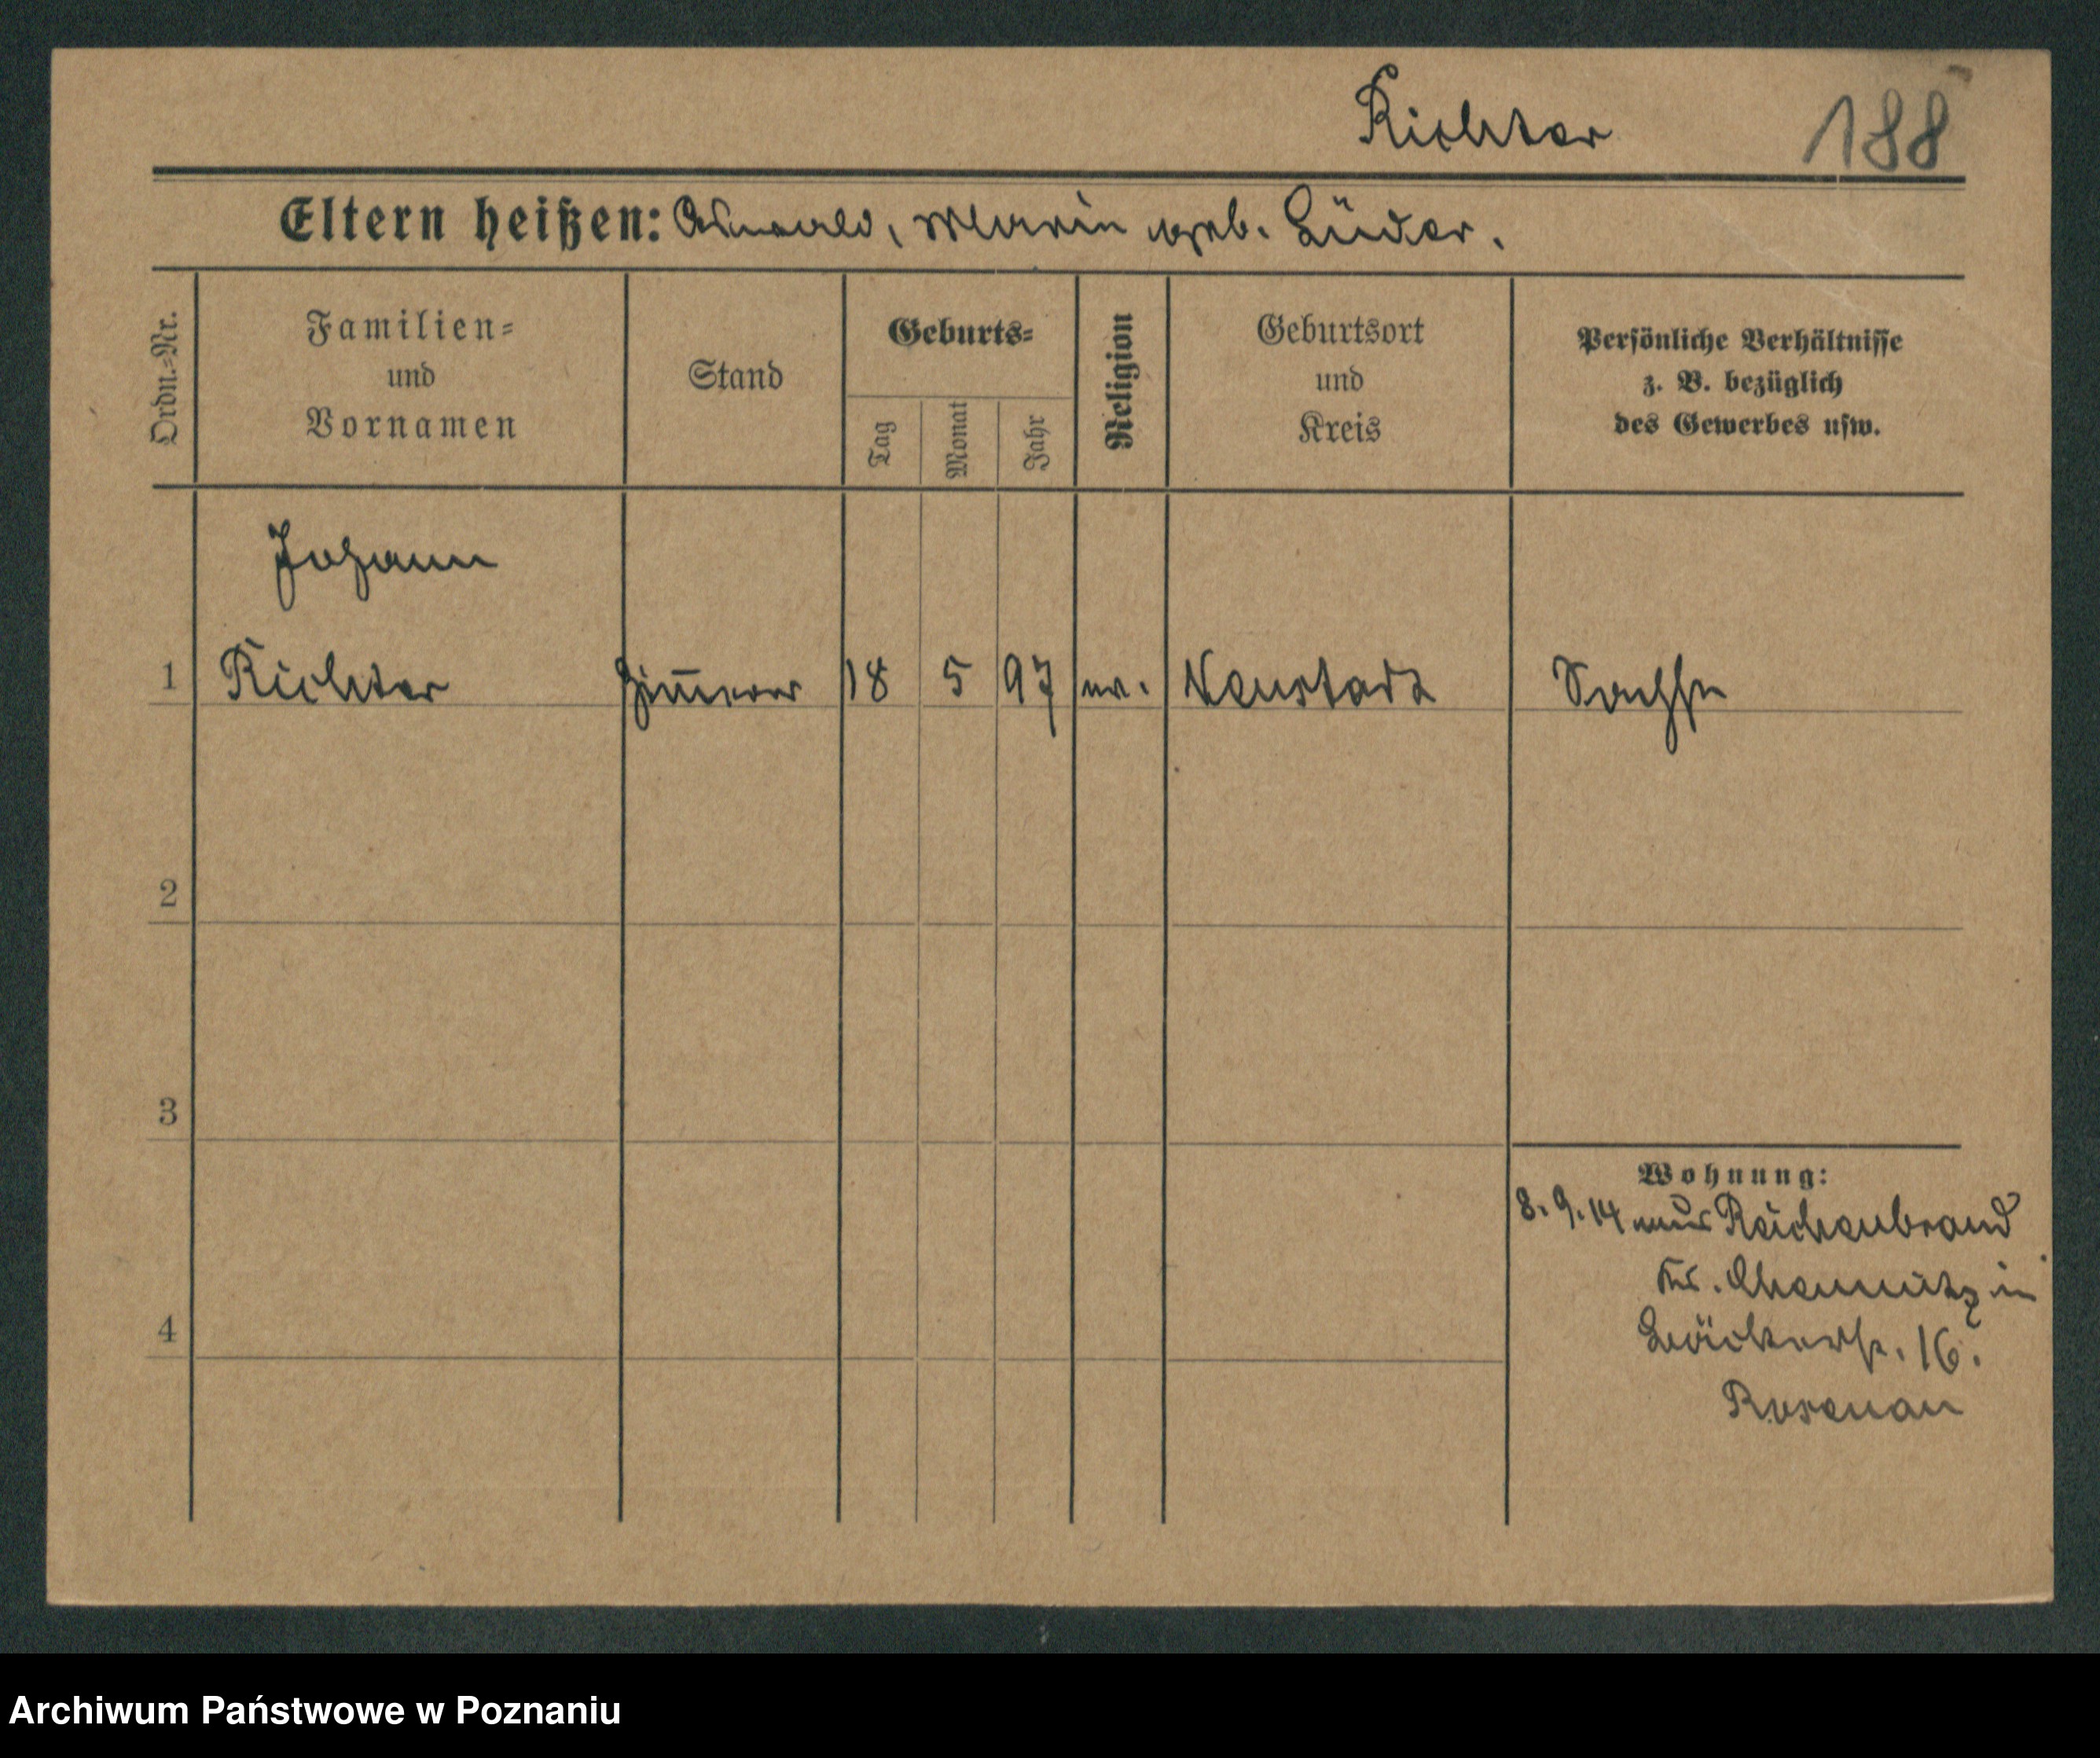 Richter 188
Eltern heißen: Oswald, Marie geb. Lüder.
Ordn.=Nr.
Familien=
und
Vornamen
Stand
Geburts=
Tag
Monat
Jahr
Religion
Geburtsort
und
Kreis
Persönliche Verhältnisse
z. B. bezüglich
des Gewerbes usw.
Johann
1 Richter Zim̅erer 18 5 97 ev. Neustadt Sachse
2
3
4
Wohnung:
8. 9. 14 aus Reichenbrand
Kr. Chemnitz in
Bäckerstr. 16.
Rosenau
Archiwum Państwowe w Poznaniu